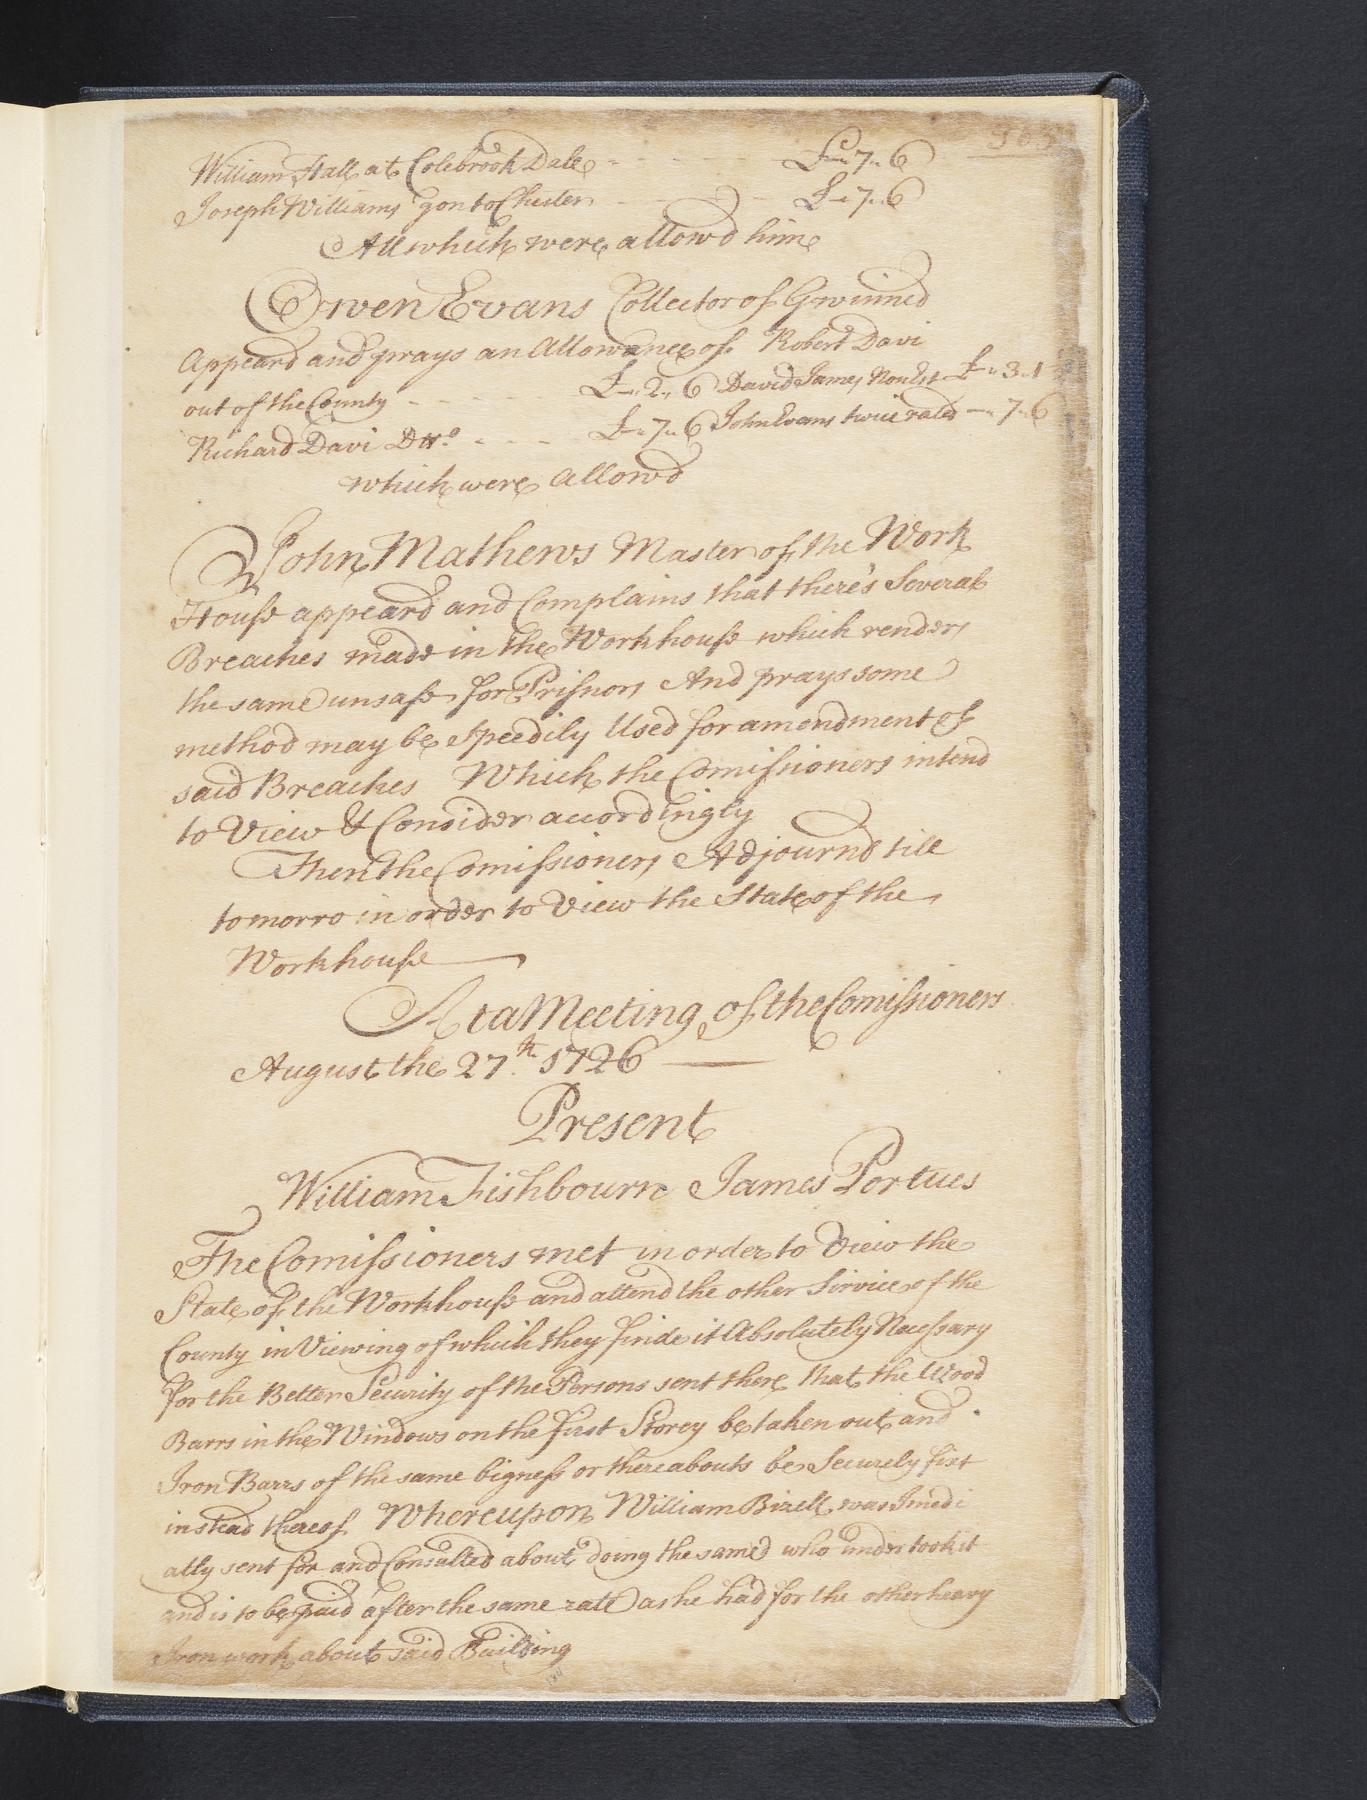 William Hall at Colebrook Dale - - - - £-"7"6
Joseph Williams gon to Chester - - - - £-"7"6
All which were allowd him
Owen Evans Collector of Gwinned
Appeard and prays an Allowance of Robert Davi
out of the County - - - - £-"2"6 David James Non Est £-"3"1
Richard Davi Dtto - - - £-"7"6 John Evans twice rated -"7"6
which were allowd
John Mathews Master of the Work
House appeard and Complains that there's Several
Breaches made in the Workhouse which renders
the same unsafe for Prisnors And prays some
method may be Speedily Used for amendment of
said Breaches Which the Comissioners intend
to View & Consider accordingly
Then the Comissioners Adjournd till
tomorro in order to View the State of the
Workhouse
At a Meeting of the Comissioners
August the 27th 1726
Present
William Fishbourn James Portues
The Comissioners met in order to View the
State of the Workhouse and attend the other Sirvice of the
County in Viewing of which they finde it Absolutely Necessary
for the Better Security of the Persons sent there that the Wood
Barrs in the Windows on the first Storey be taken out and
Iron Barrs of the same bigness or thereabouts be Securely fixt
instead thereof Whereupon William Bizell was Imedi
atly sent for and Consulted about doing the same who undertook it
and is to be paid after the same rate as he had for the other heavy
Iron work about said Building